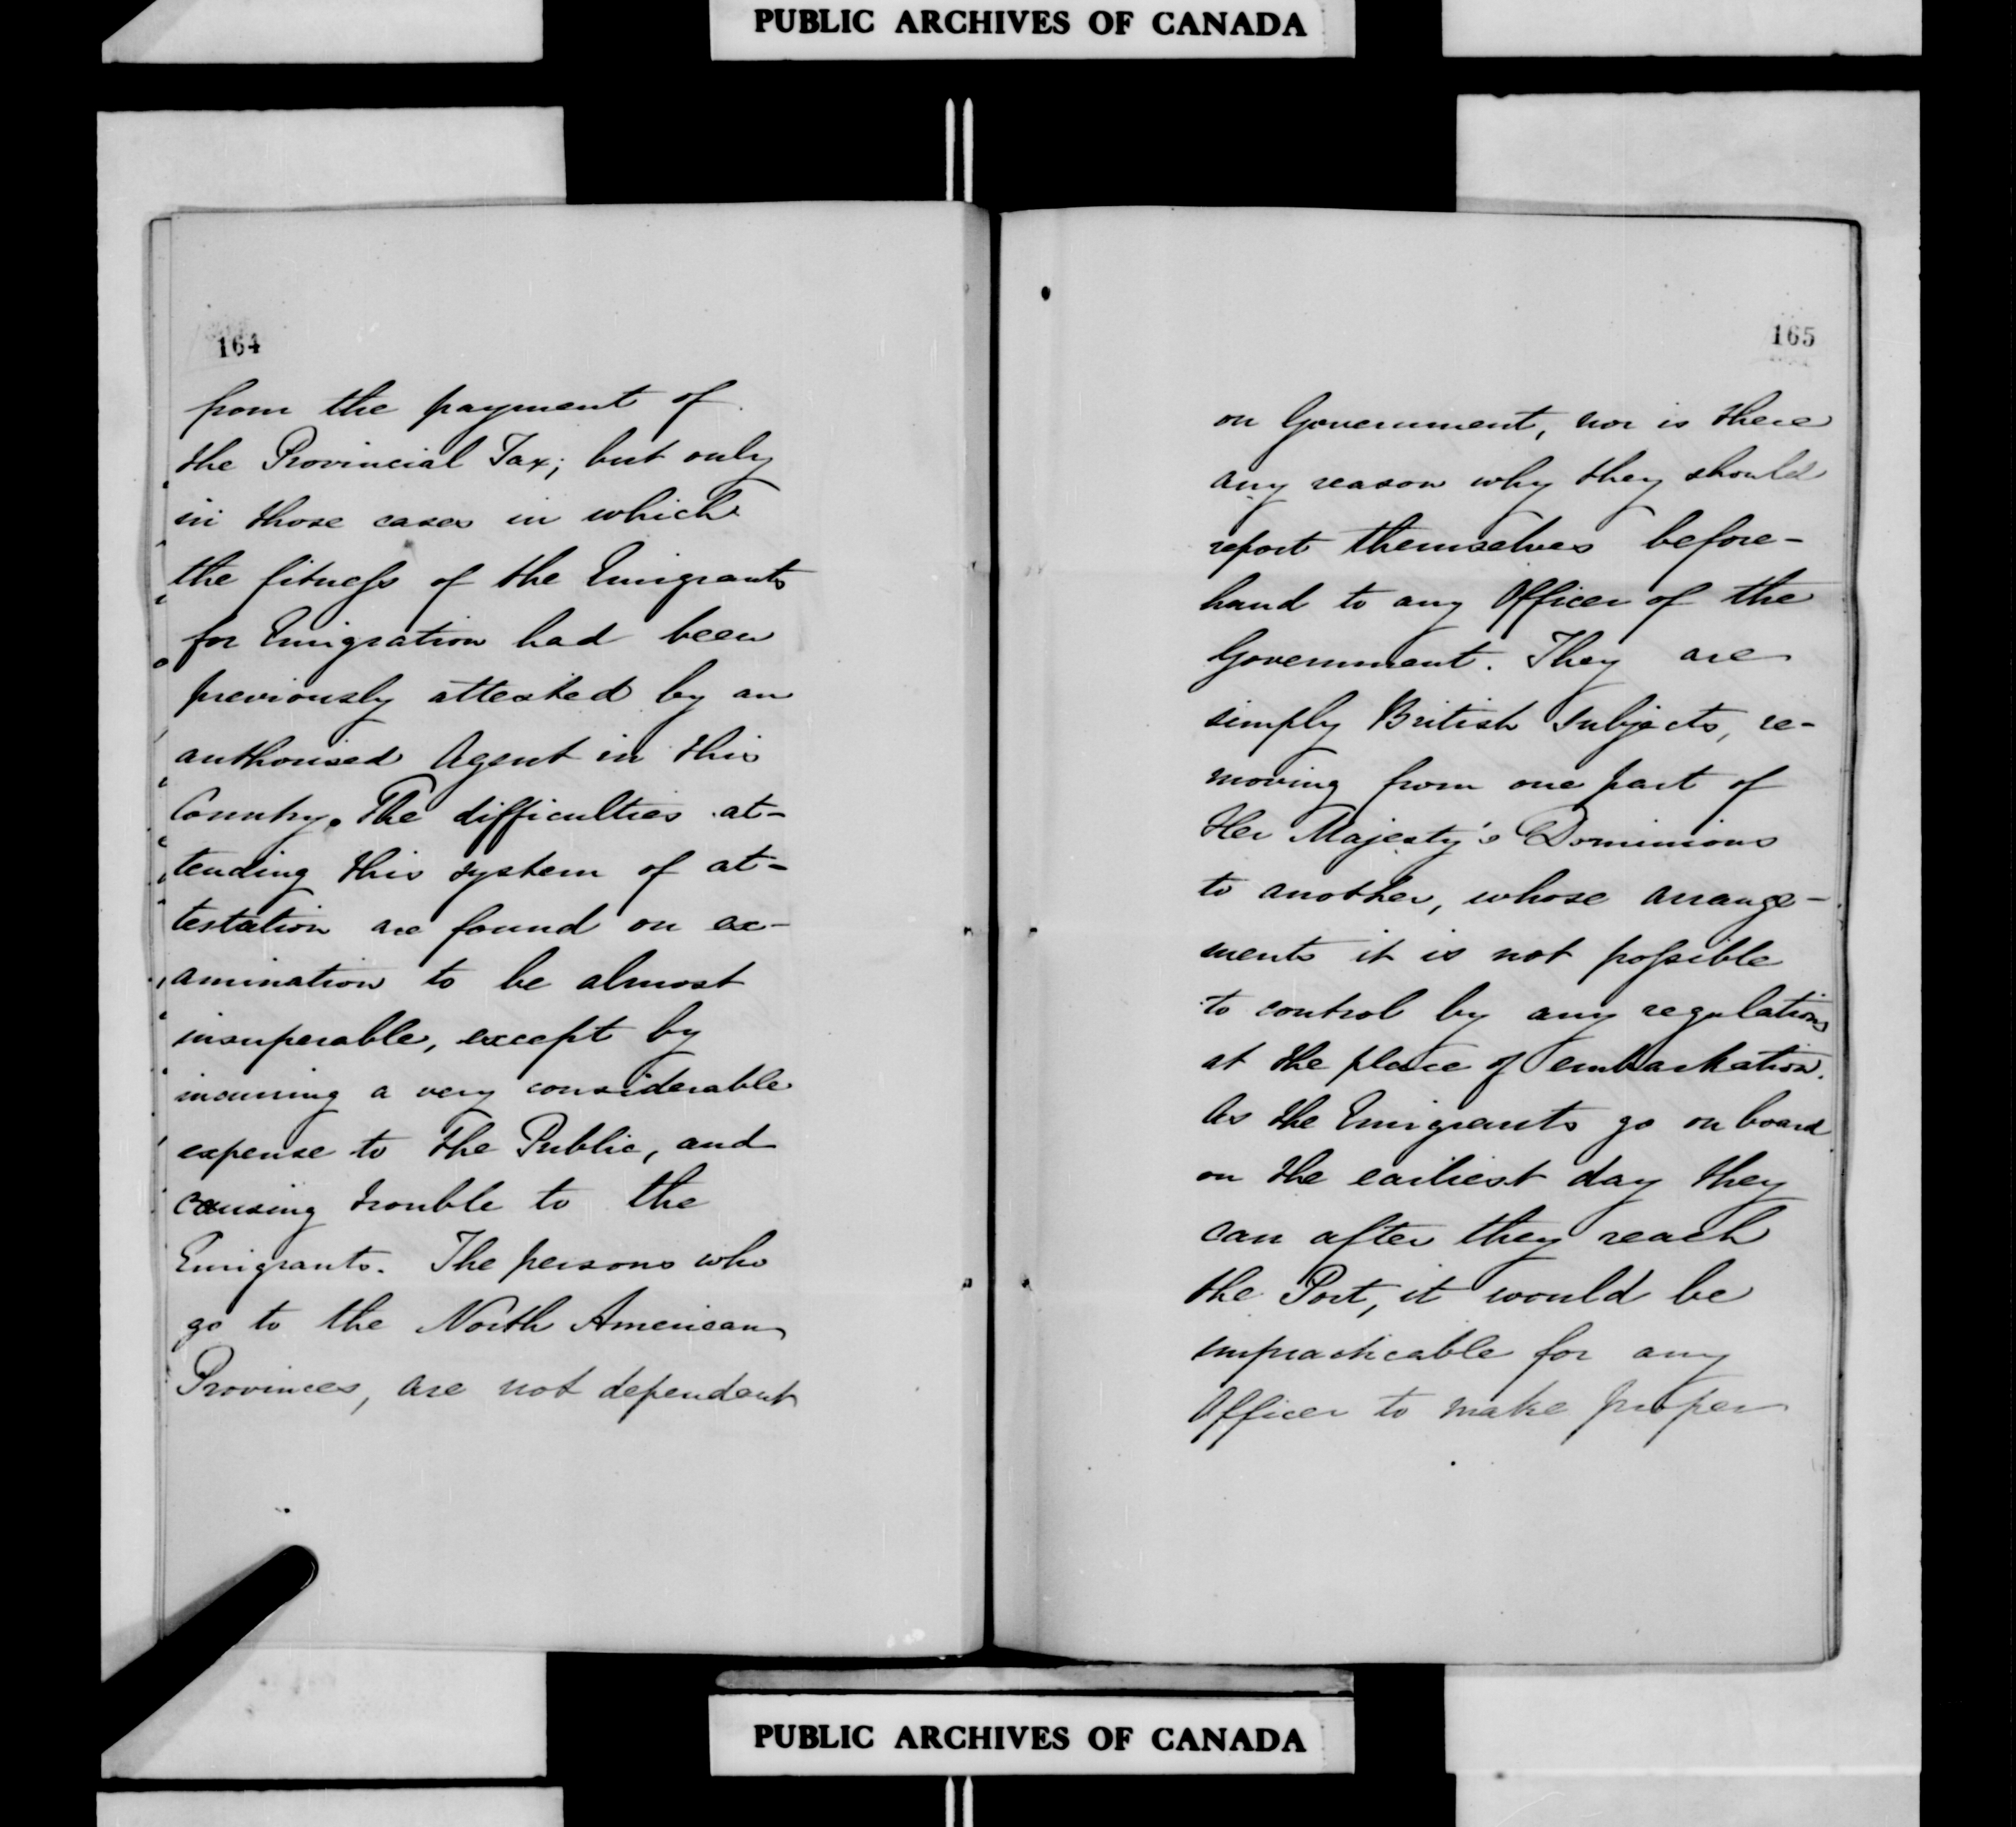 PUBLIC ARCHIVES OF CANADA
164
from the payment of
the Provincial Tax; but only
in those cases in which
the fitness of the Emigrants
for Emigration had been
previously attested by an
authorised Agent in this
Country. The difficulties at-
tending this system of at-
testation are found on ex-
amination to be almost
insuperable, except by
incurring a very considerable
expense to the Public, and
causing trouble to the
Emigrants. The persons who
go to the North American
Provinces, are not dependent
165
on Government, nor is there
any reason why they should
report themselves before-
hand to any Officer of the
Government. They are
simply British Subjects, re-
moving from one part of
Her Majesty's Dominions
to another, whose arrange-
ments it is not possible
to control by any regulations
at the place of embarkation.
As the Emigrants go on board
on the earliest day they
can after they reach
the Port, it would be
impracticable for any
Officer to make proper
PUBLIC ARCHIVES OF CANADA